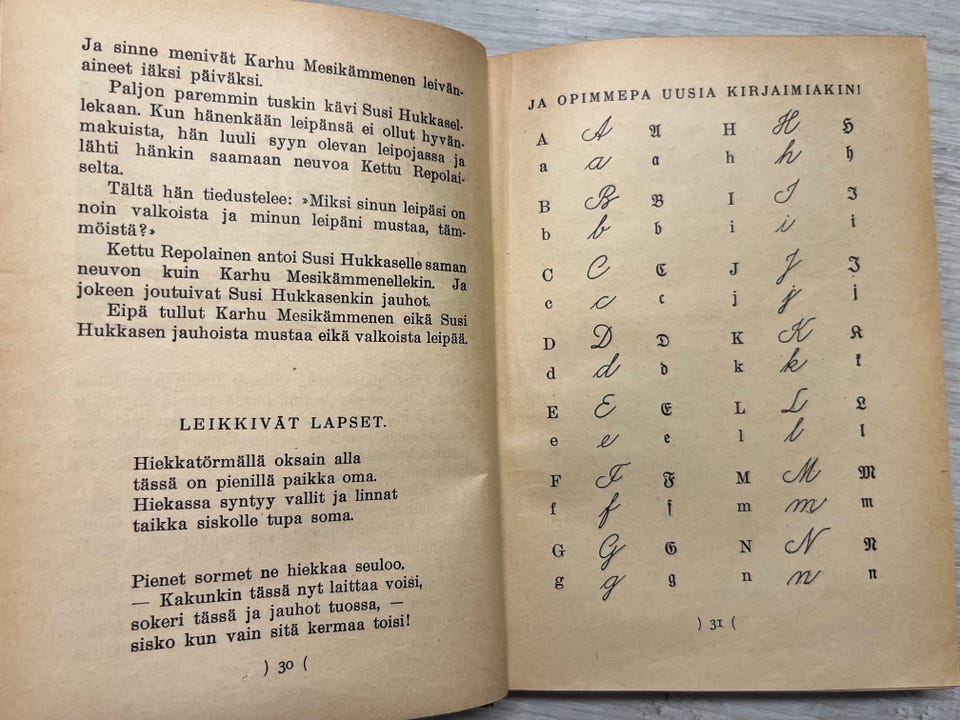 Ja sinne menivät Karhu Mesikämmenen leivän-
aineet iäksi päiväksi.
Paljon paremmin tuskin kävi Susi Hukkasel-
lekaan. Kun hänenkään leipänsä ei ollut hyvän-
makuista, hän luuli syyn olevan leipojassa ja
lähti hänkin saamaan neuvoa Kettu Repolai-
selta.
Tältä hän tiedustelee: »Miksi sinun leipäsi on
noin valkoista ja minun leipäni mustaa, täm-
möistä?»
Kettu Repolainen antoi Susi Hukkaselle saman
neuvon kuin Karhu Mesikämmenellekin. Ja
jokeen joutuivat Susi Hukkasenkin jauhot.
Eipä tullut Karhu Mesikämmenen eikä Susi
Hukkasen jauhoista mustaa eikä valkoista leipää.
LEIKKIVÄT LAPSET.
Hiekkatörmällä oksain alla
tässä on pienillä paikka oma.
Hiekassa syntyy vallit ja linnat
taikka siskolle tupa soma.
Pienet sormet ne hiekkaa seuloo.
— Kakunkin tässä nyt laittaa voisi,
sokeri tässä ja jauhot tuossa, —
sisko kun vain sitä kermaa toisi!
) 30 (
JA OPIMMEPA UUSIA KIRJAIMIAKIN!
A A 𝕬 H H 𝕳
a a 𝖆 h h 𝖍
B B 𝕭 I I 𝕴
b b 𝖇 i i 𝖎
C C 𝕮 J J 𝕵
c c 𝖈 j j 𝖏
D D 𝕯 K K 𝕶
d d 𝖉 k k 𝖐
E E 𝕰 L L 𝕷
e e 𝖊 l l 𝖑
F F 𝕱 M M 𝕸
f f 𝖋 m m 𝖒
G G 𝕲 N N 𝕹
g g 𝖌 n n 𝖓
) 31 (